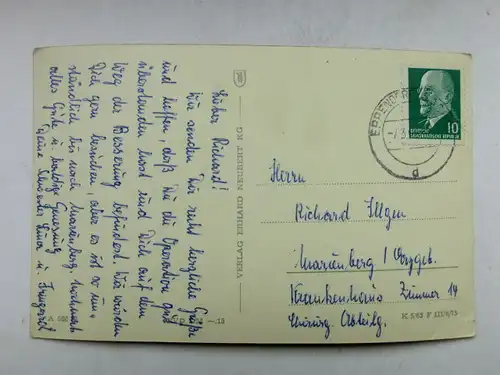 Lieber Richard!
Wir senden Dir recht herzliche Grüße
und hoffen, daß Du die Operation gut
überstanden hast und Dich auf dem
Weg der Besserung befindest. Wir würden
Dich gern besuchen, aber es ist so um-
ständlich bis nach Marienberg. Nochmals
alles Gute u. baldige Genesung
Deine Schwester u. Irmgard
VERLAG ERHARD NEUBERT KG
EPPENDORF
DEUTSCHE
DEMOKRATISCHE REPUBLIK
10
d
Herrn
Richard Illgen
Marienberg / Erzgeb.
Krankenhaus Zimmer 14
Chirurg. Abteilg.